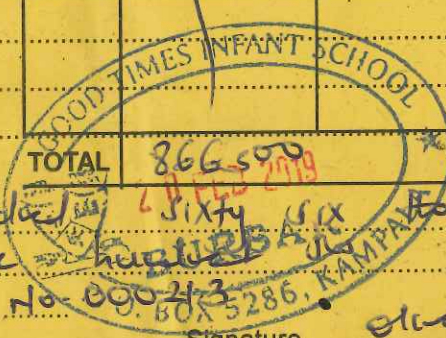 GOOD TIMES INFANT SCHOOL
TOTAL 866500
20 FEB 2019
Sixty Six
BURSAR
hundred
No. 000243
. BOX 5286, KAMPA
Signature